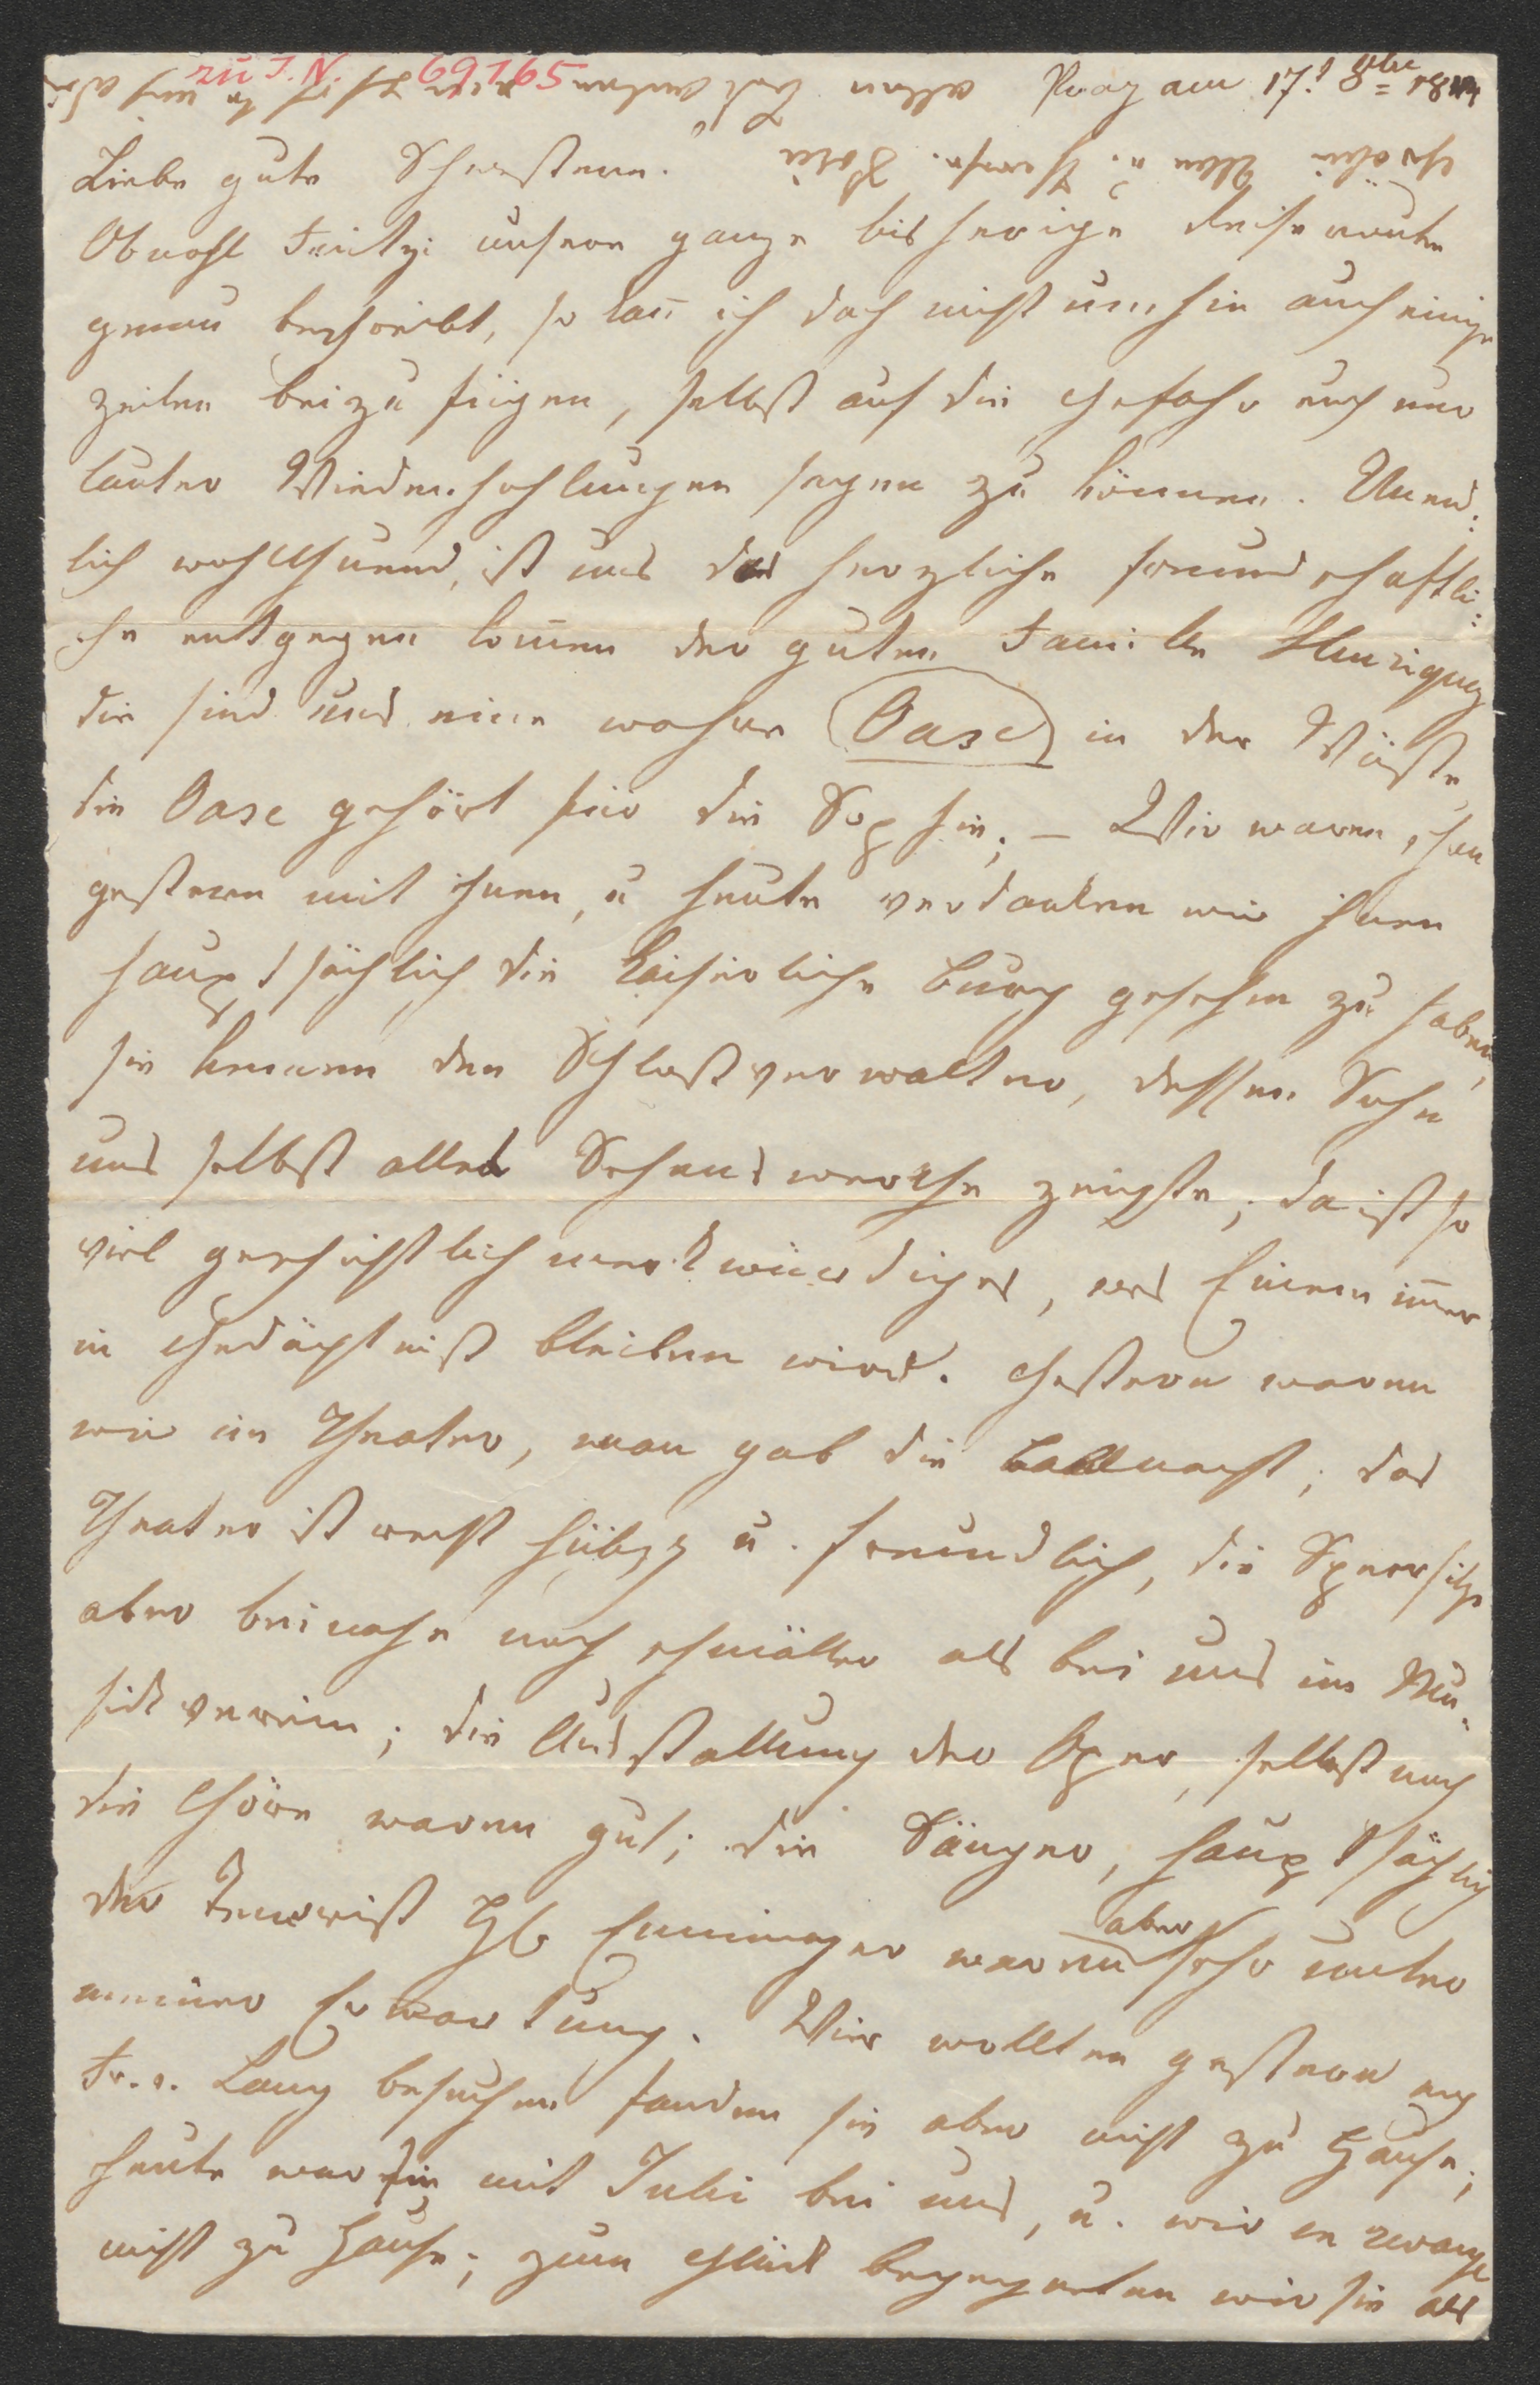 zu I. N. 69165
Prag am 17t 8ber
Liebe gute Schwestern.
Obwohl Fritzi unsere ganze bisherige Reiseroute
genau beschreibt, so kan̄ ich doch nicht umhin auch einige
Zeilen beizufügen, selbst auf die Gefahr euch nur
lauter Wiederhohlungen sagen zu können. Unend:
lich wohlthuend, ist uns das herzliche freundschaftli:
che entgegen kom̄en der guten Familie
die sind uns eine wahre Oase in der Wüste,
die Oase gehört für die Sophie; – Wir waren schon
gestern mit ihnen, u heute verdanken wir ihnen
hauptsächlich die kaiserliche Burg gesehen zu haben,
sie kennen den Schloßverwalter, dessen Sohn
uns selbst alles Sehenswerthe zeigte; da ist so
viel geschichtlich merkwürdiges, was Einem im̄er
in Gedächtniß bleiben wird. Gestern waren
wir im Theater, man gab die Ballnacht; das
Theater ist recht hübsch u. freundlich, die Sperrsitze
aber beinahe noch schmäller als bei uns im Mu:
sikverein; die Ausstattung der Oper, selbst auch
die Chöre waren gut; die Sänger, hauptsächlich
der Tenorist H: Emminger waren aber sehr unter
meiner Erwartung. Wir wollten gestern auch
Fr. v. Lang besuchen fanden sie aber nicht zu Hause;
heute war sie mit Julie bei uns, u. wir en revange
nicht zu Hause; zum Glück begegneten wir sie als